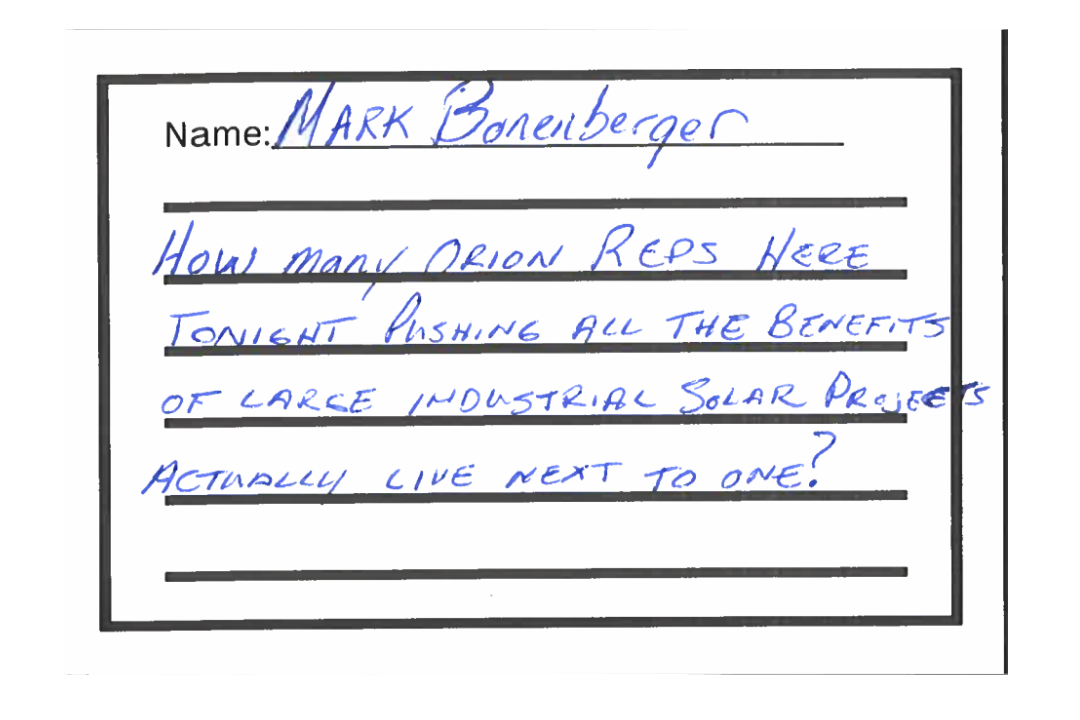 Name: MARK Bonenberger
How many ORION REPS HERE
TONIGHT PUSHING ALL THE BENEFITS
OF LARGE INDUSTRIAL SOLAR PROJECTS
ACTUALLY LIVE NEXT TO ONE?